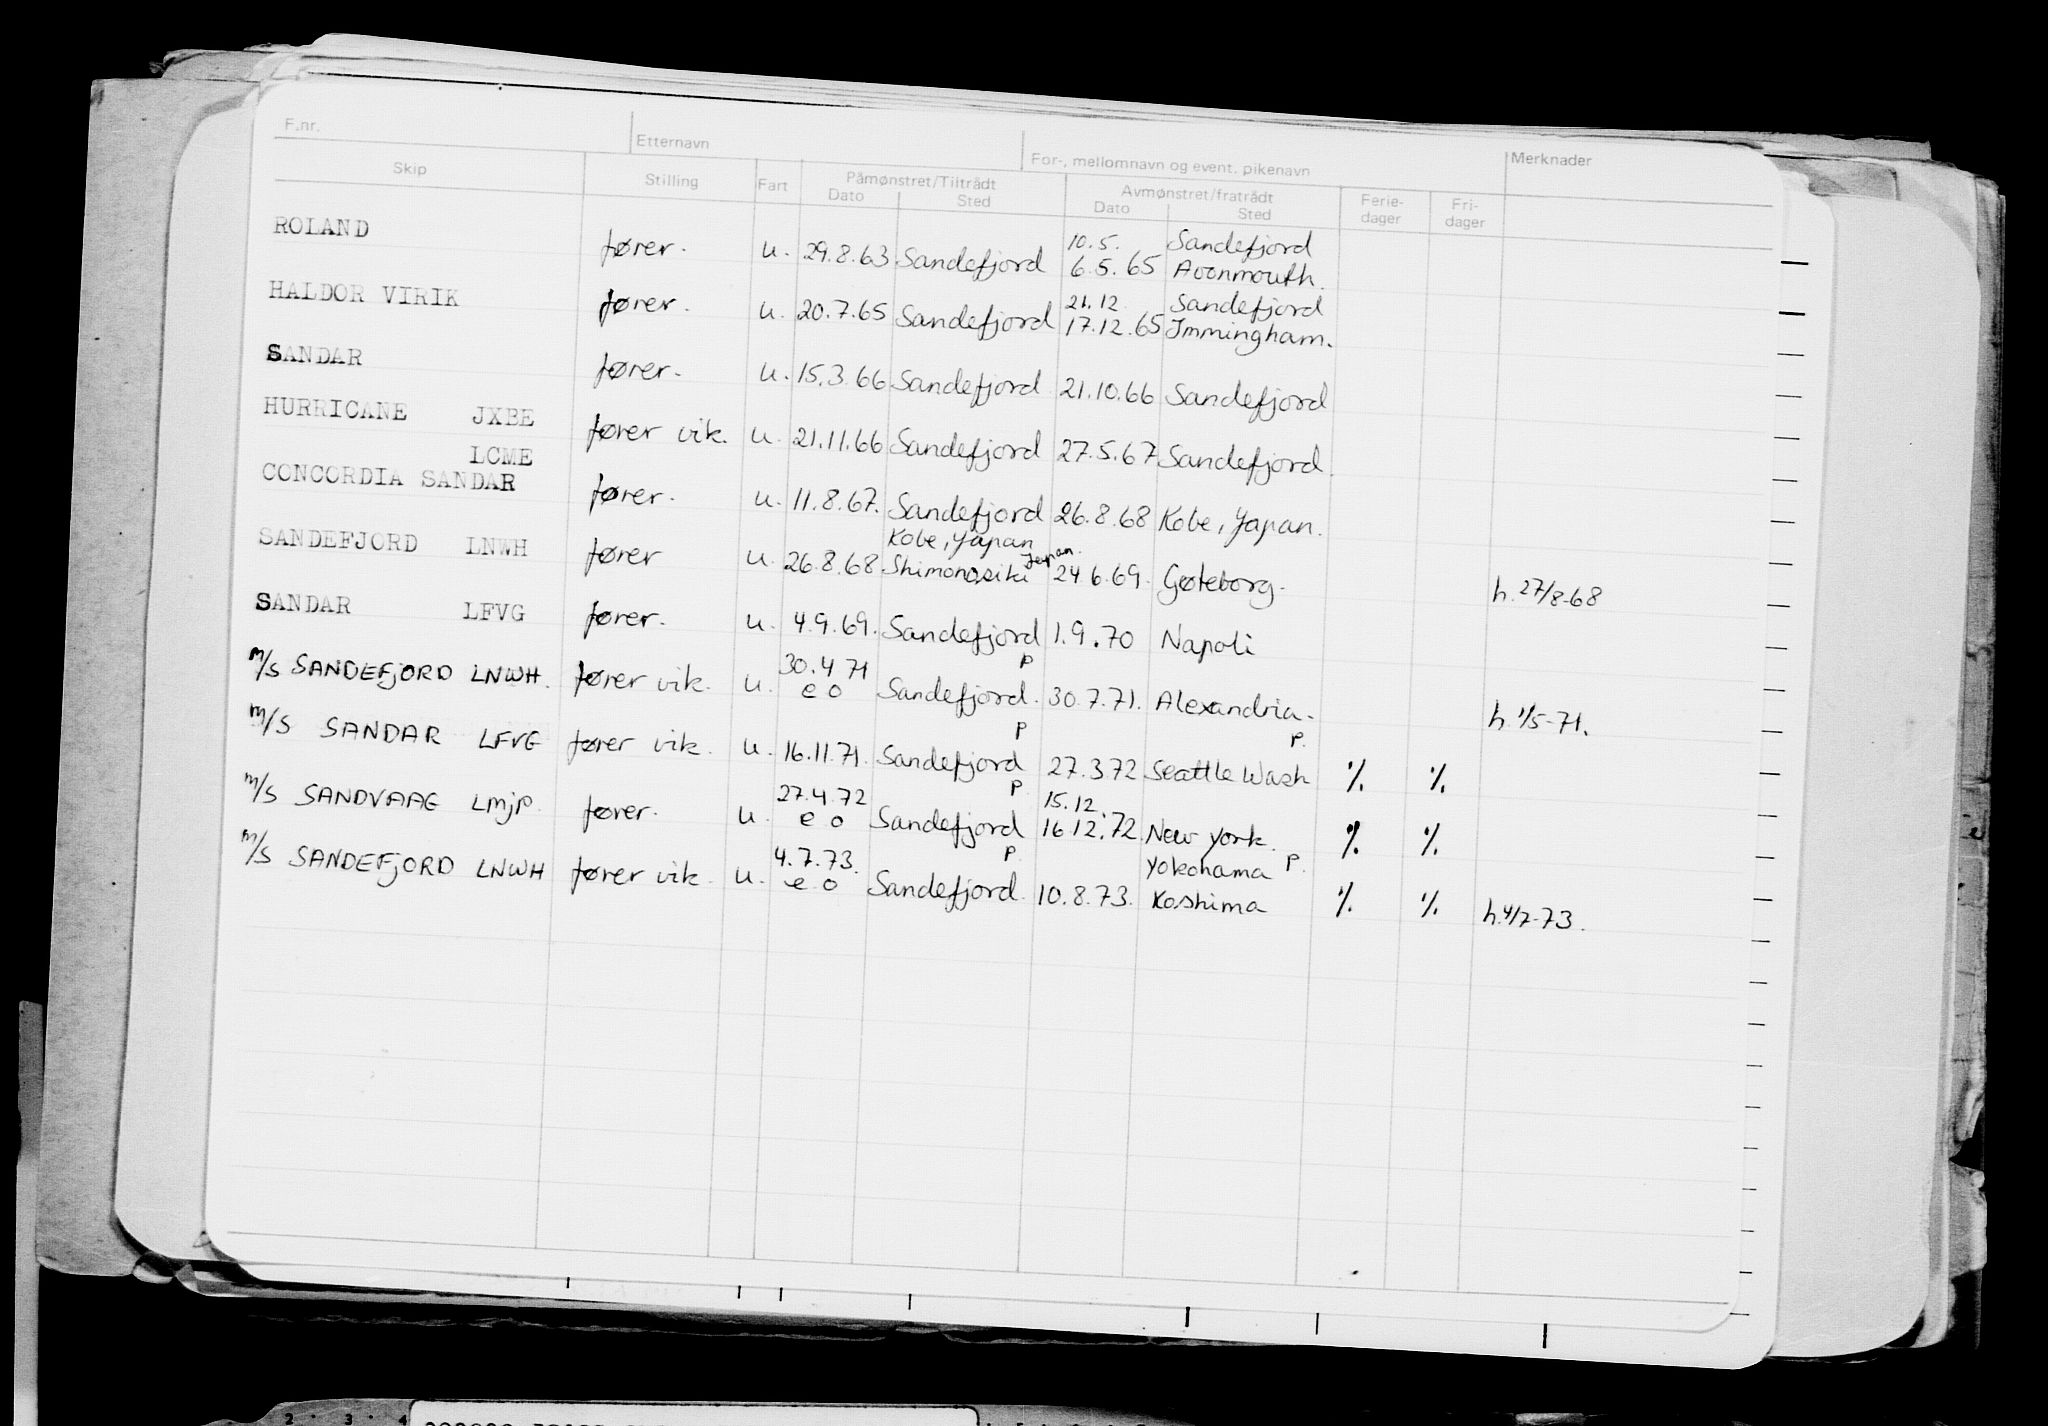 F.nr. Etternavn For-, mellomnavn og event. pikenavn Merknader
Skip Stilling Fart Påmønstret/Tiltrådt Avmønstret/fratrådt Ferie- Fri-
Dato Sted Dato Sted dager dager
10.5. Sandefjord
ROLAND fører. u. 29.8.63 Sandefjord 6.5.65 Avonmouth.
21.12. Sandefjord
HALDOR VIRIK fører. u. 20.7.65 Sandefjord 17.12.65 Immingham.
SANDAR fører. u. 15.3.66 Sandefjord 21.10.66 Sandefjord
HURRICANE JXBE fører vik. u. 21.11.66 Sandefjord 27.5.67 Sandefjord.
LCME
CONCORDIA SANDAR fører. u. 11.8.67. Sandefjord 26.8.68 Kobe, Japan.
Kobe, Japan
SANDEFJORD LNWH fører u. 26.8.68 Shimonosiki Japan. 24.6.69. Gøteborg. h. 27/8-68
SANDAR LFVG fører. u. 4.9.69. Sandefjord 1.9.70 Napoli
30.4 71 P
m/s SANDEFJORD LNWH. fører vik. u. e o Sandefjord. 30.7.71. Alexandria. h. 1/5-71.
P P.
m/s SANDAR LFVG fører vik. u. 16.11.71. Sandefjord 27.3.72 Seattle Wash % %
27.4.72 P 15.12.
m/s SANDVAAG LMJP. fører. u. e o Sandefjord 16.12.72 New York. % %
4.7.73. P Yokohama P.
m/s SANDEFJORD LNWH fører vik. u. e o Sandefjord. 10.8.73. Kashima % % h.4/7-73.
2 3 4